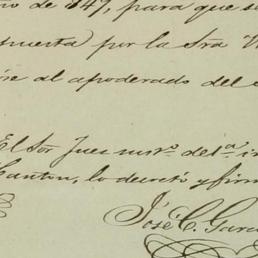 de 1847, para que se
puesta por la Sra V
al apoderado del
El Sor Juez nstrº. de 1ª. in
Canton, lo decretó y firm
José C. Garc